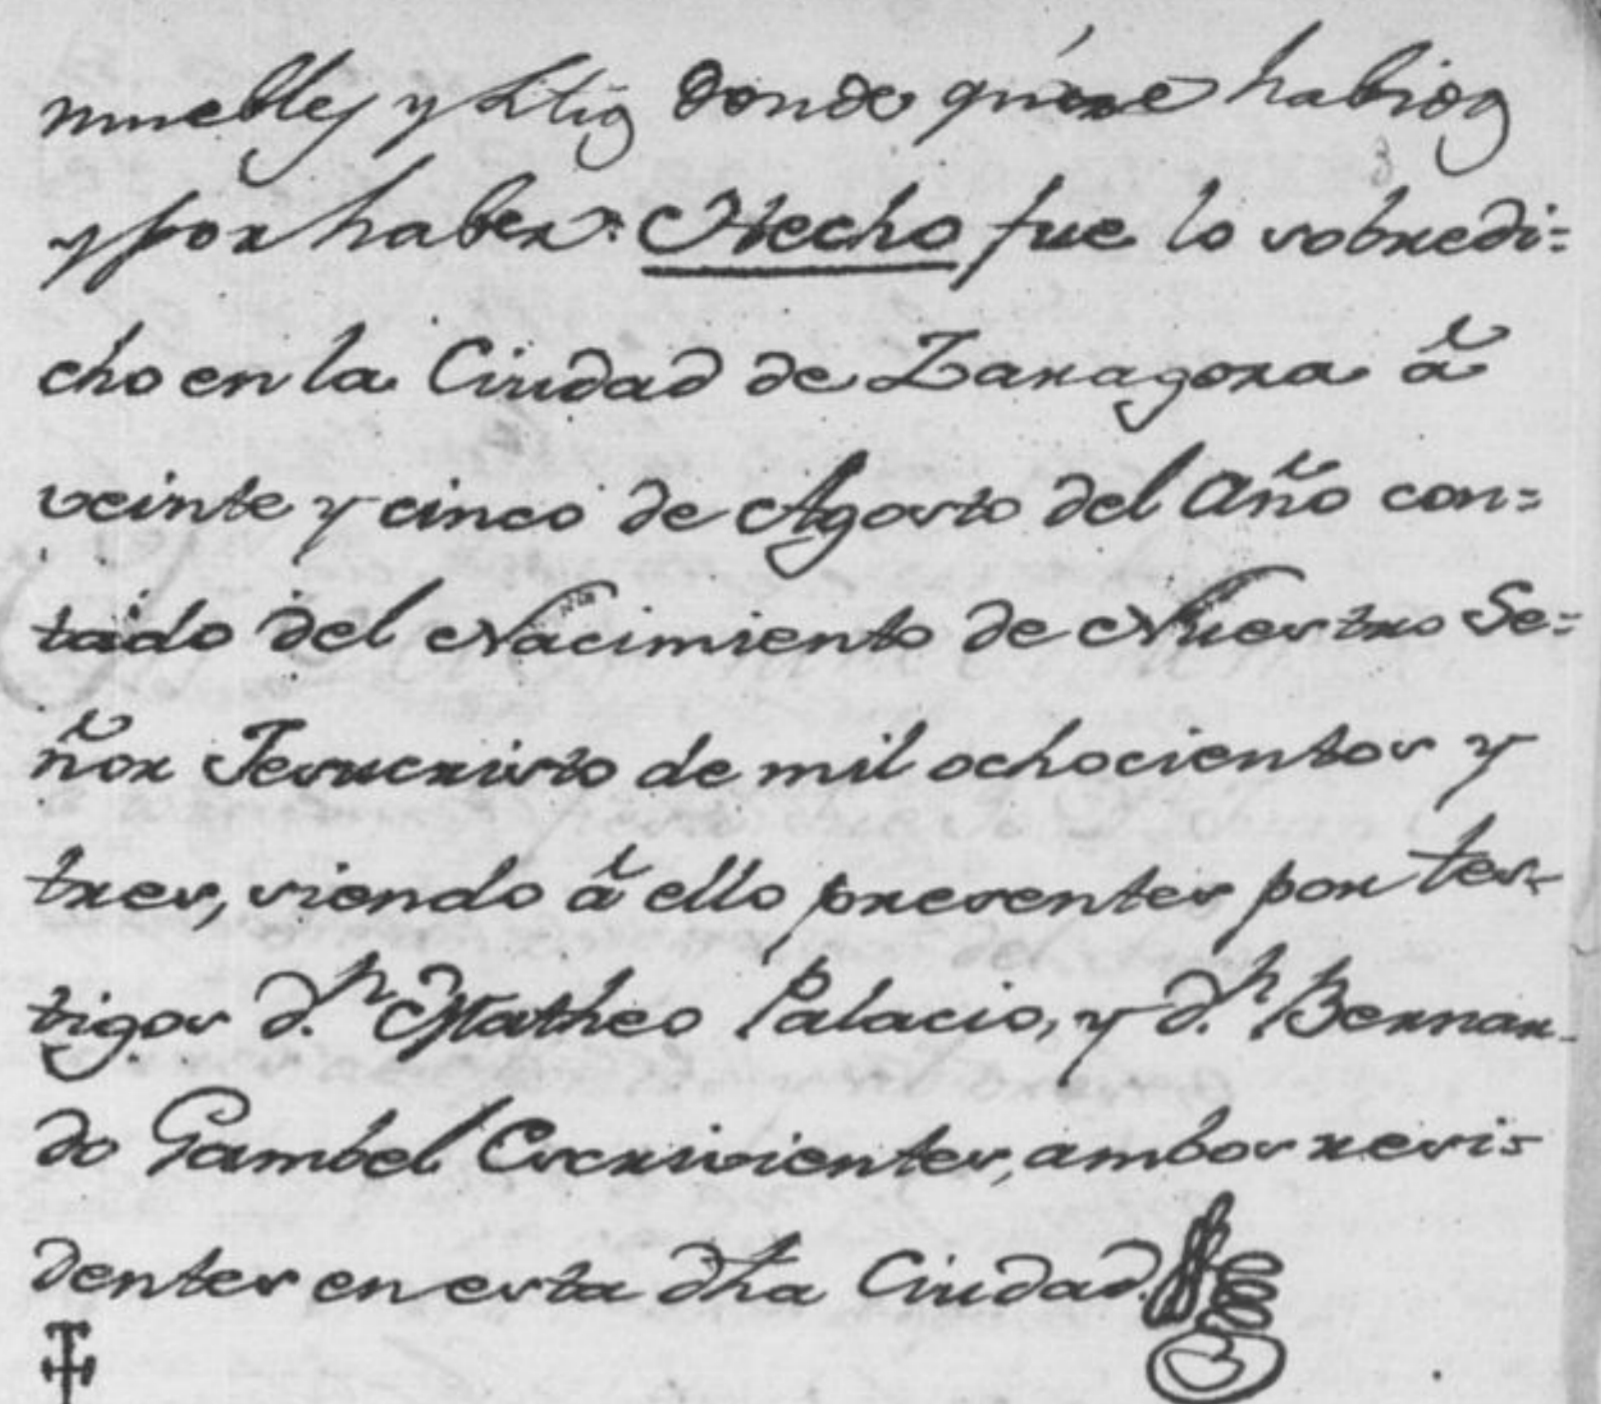 muebles y sitios donde quiere habidos
y por haber: Hecho fue lo sobredi=
cho en la Ciudad de Zaragoza à
veinte y cinco de Agosto del Año con=
tado del Nacimiento de Nuestro Se=
ñor Jesucristo de mil ochocientos y
tres, siendo à ello presentes por tes-
tigos d.n Matheo Palacio, y d.n Bernar-
do Gambel Escrivientes, ambos resi=
dentes en esta dha Ciudad.